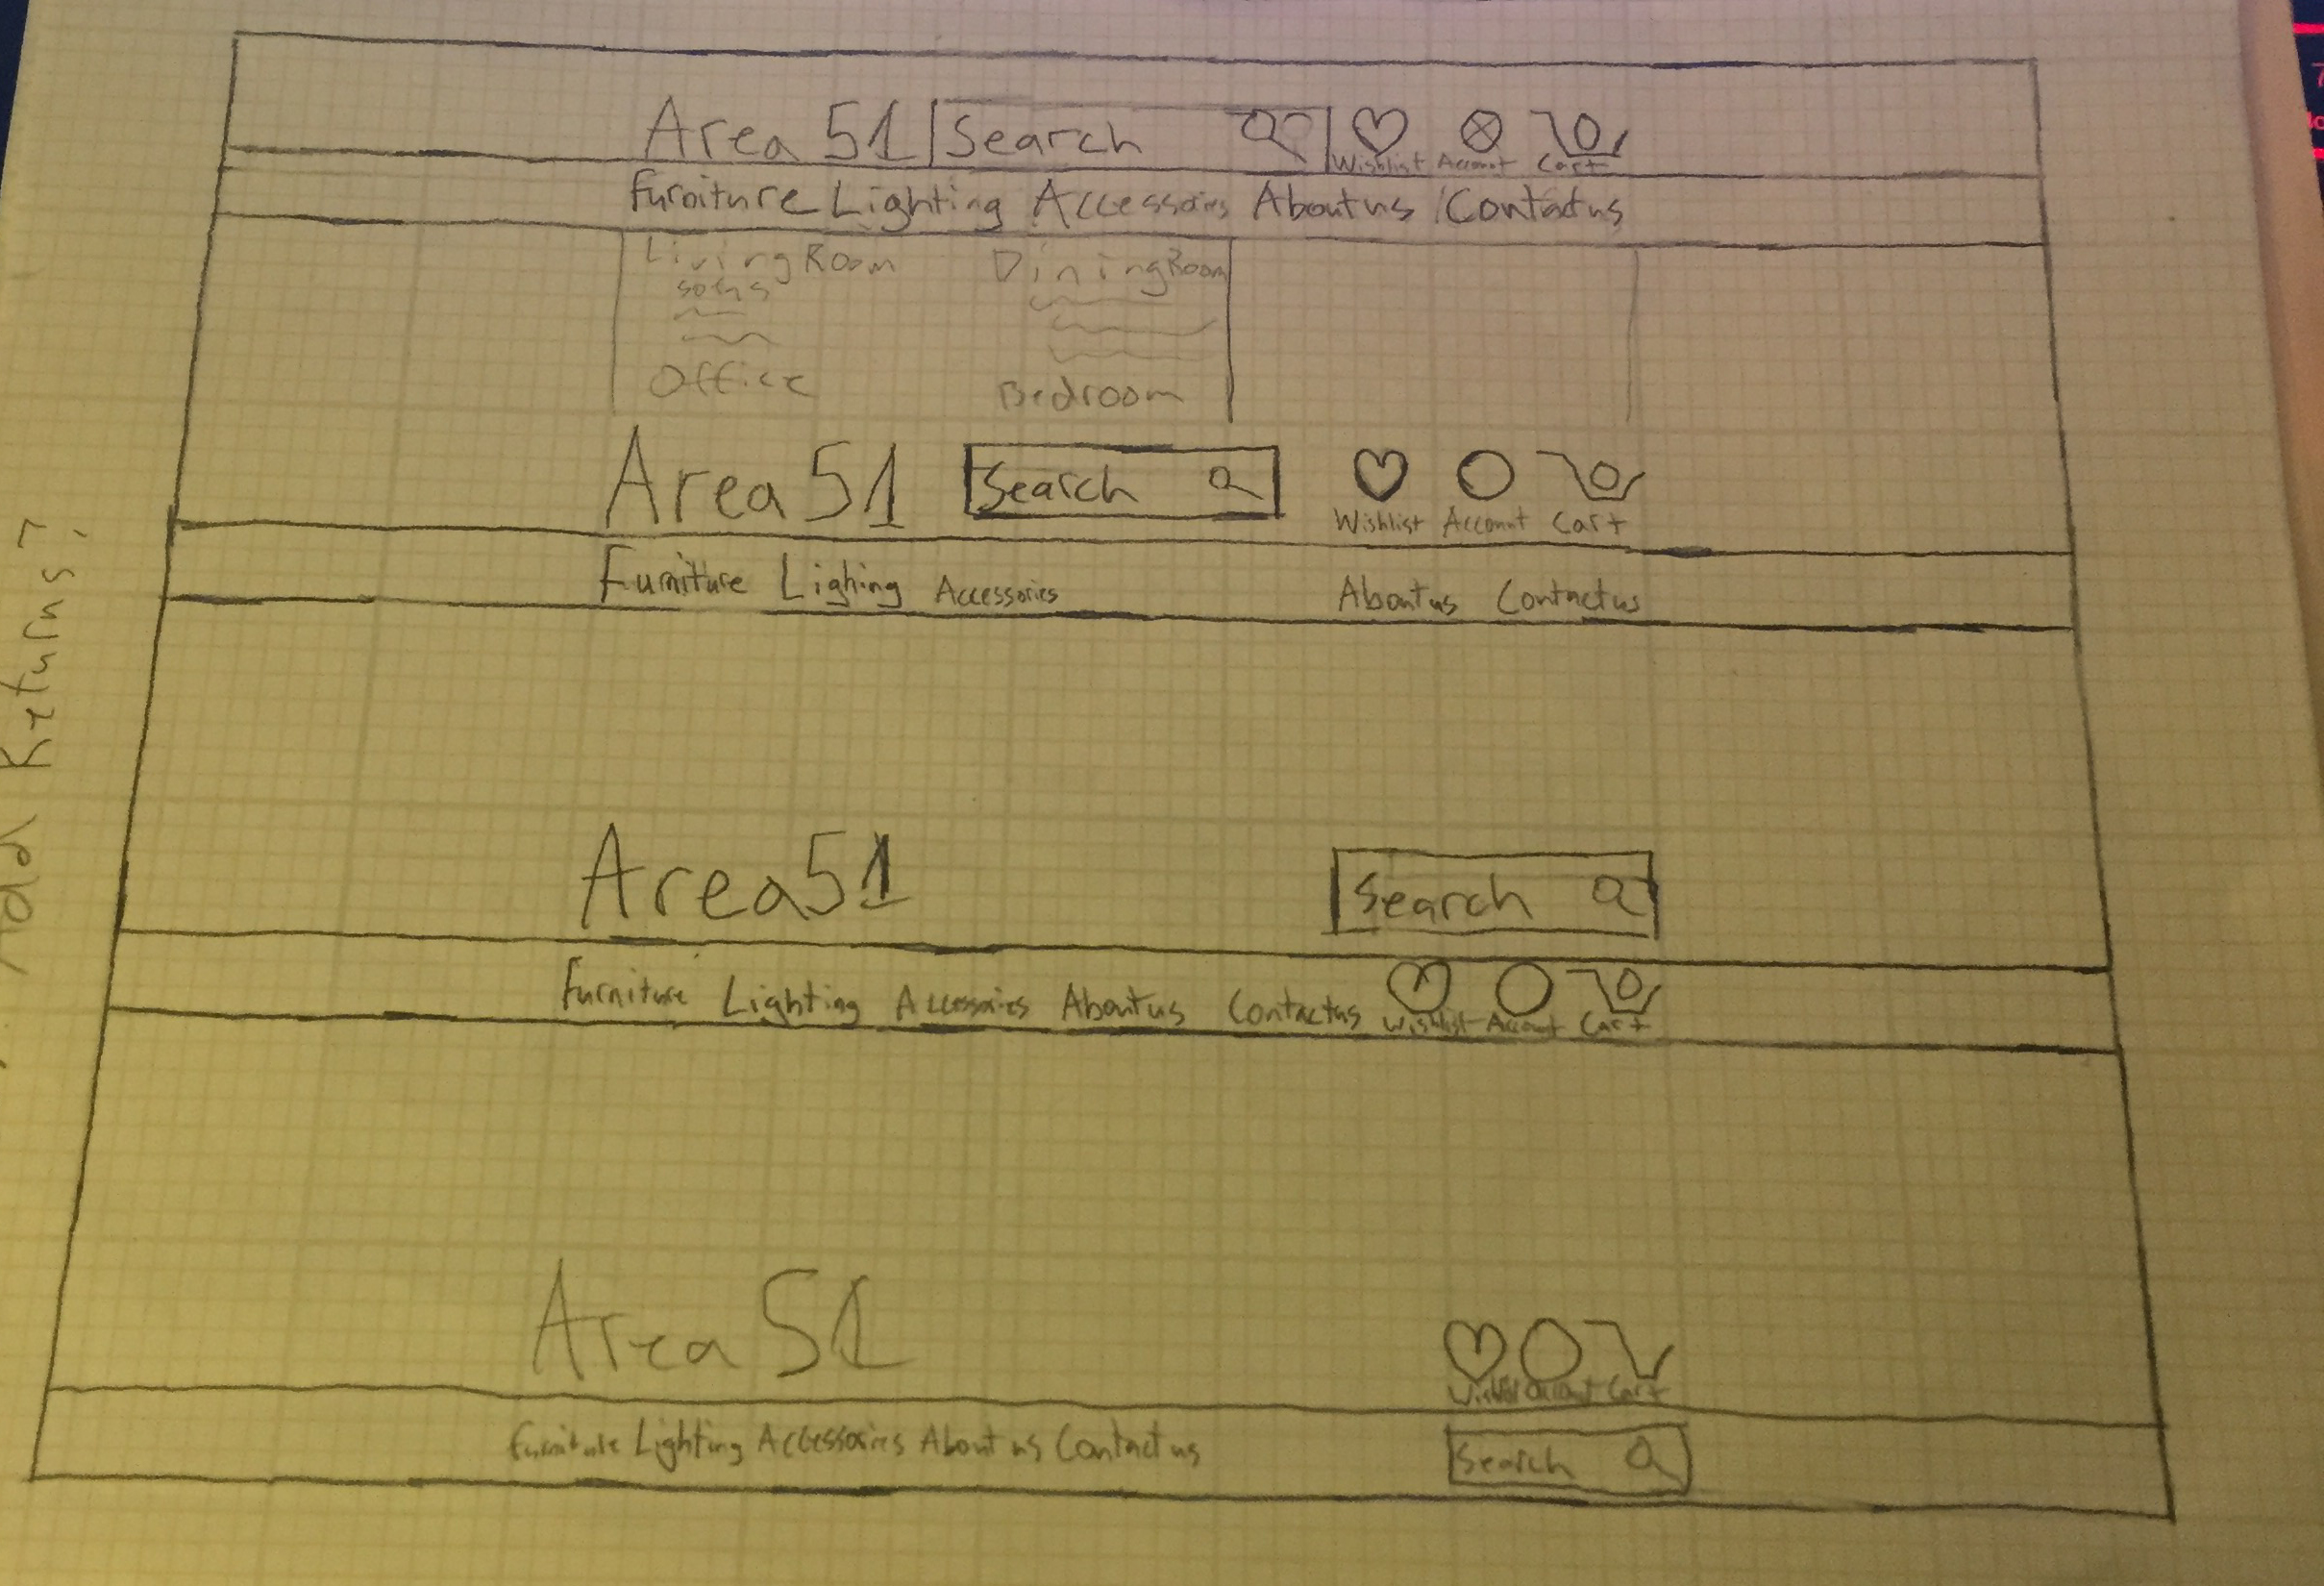 Area 51 Search
Wishlist Account Cart
Furniture Lighting Accessories About us Contact us
Living Room Dining Room
sofas
Office Bedroom
Area 51 Search
Wishlist Account Cart
Furniture Lighing Accessories About us Contact us
Area 51 Search
Furniture Lighting Accessories About us Contact us
Wishlist Account Cart
Area 51
Wishlist Account Cart
Furniture Lighting Accessories About us Contact us Search
Add Returns?